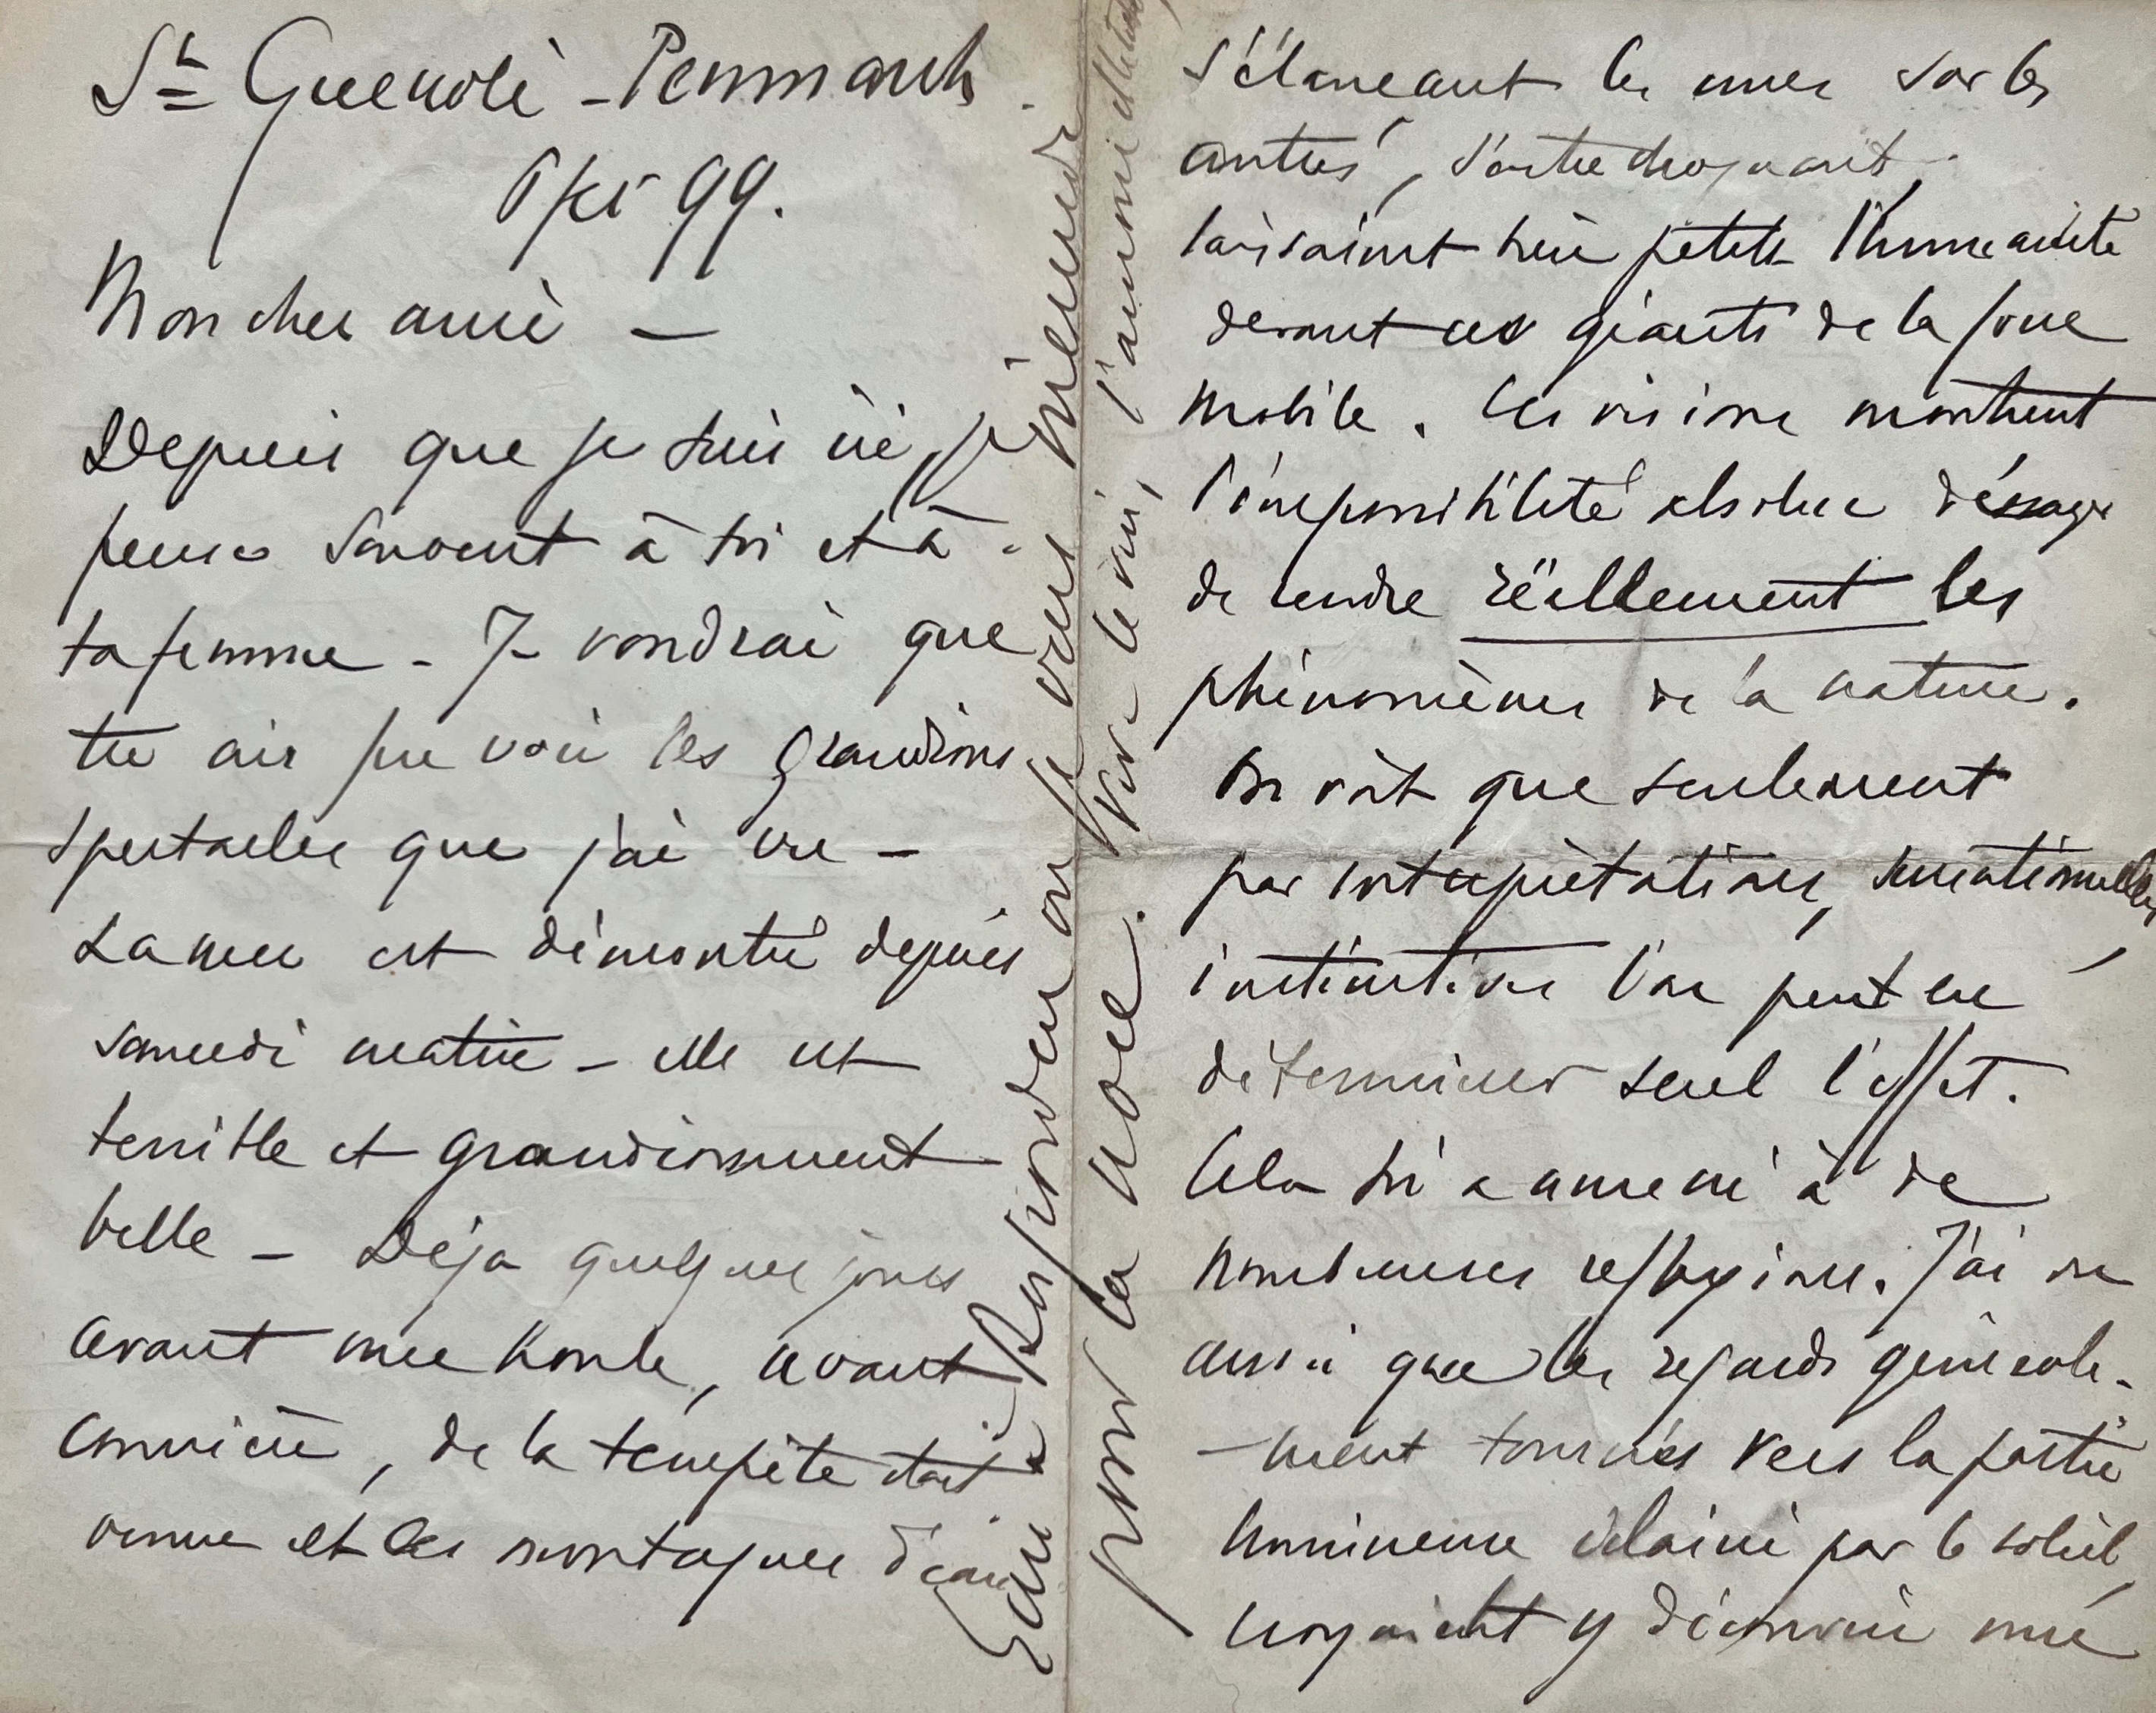 St Guenolé - Penmarch.
99.
Mon cher ami —
Depuis que je suis ici, je
pense souvent à toi et à
ta femme - Je voudrai que
tu ais pu voir les grandioses
spectacles que j'ai vu -
La mer est démonté depuis
samedi matin - elle est
terrible et grandiosement
belle - Déjà quelques jours
avant une houle, avant
courrière, de la tempête était
venue et les montagnes d'eau
s'élançant les unes sur les
autres, s'entrechoquant,
laissaient bien petite l'humanité
devant ces géants de la force
mobile. Ces visions montrent
l'impossibilité absolue
de rendre réellement les
phénomènes de la nature.
On voit que seulement
par interprétations, sensationnelles,
instinctives l'on peut en
déterminer seul l'effet.
Cela m'a amené à de
nombreuses reflexions. J'ai vu
aussi que les regards générale-
-ment tournés vers la partie
lumineuse éclairé par le soleil,
croyaient y découvrir une
Ecris Réponden on se vous viendrez
voir le mien,
pour la noce.